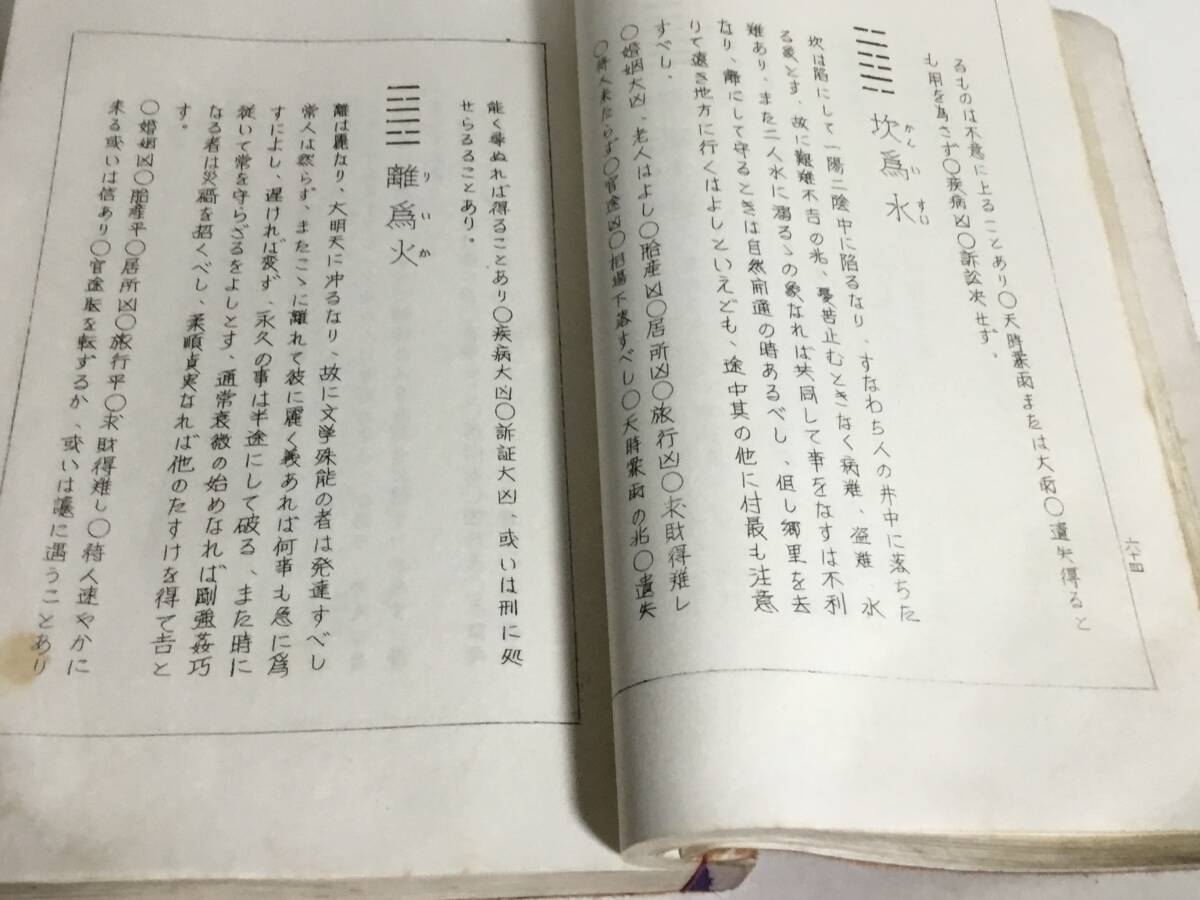 るものは不意に上ることあり〇天時暴雨または大雨〇遺失得ると
も用を為さず〇疾病凶〇訴訟決せず。
坎爲水
かんいすい
坎は陷にして一陽二陰中に陷るなり、すなわち人の井中に落ちた
る象とす、故に艱難不吉の兆、憂苦止むときなく病難、盗難、水
難あり、また二人水に溺るゝの象なれば共同して事をなすは不利
なり、静にして守るときは自然開通の時あるべし、但し郷里を去
りて遠き地方に行くはよしといえども、途中其の他に付最も注意
すべし。
〇婚姻大凶、老人はよし〇胎産凶〇居所凶〇旅行凶〇求財得難し
〇待人来たらず〇官途凶〇相場下落すべし〇天時暴雨の兆〇遺失
六十四
能く尋ぬれば得ることあり〇疾病大凶〇訴証大凶、或いは刑に処
せらるることあり。
離爲火
りいか
離は麗なり、大明天に冲るなり、故に文学殊能の者は発達すべし
常人は然らず、またこゝに離れて彼に麗く義あれば何事も急に爲
すによし、遅ければ変ず、永久の事は半途にして破る、また時に
従いて常を守らざるをよしとす、通常衰微の始めなれば剛強姦巧
なる者は災禍を招くべし、柔順貞実なれば他のたすけを得て吉と
す。
〇婚姻凶〇胎産平〇居所凶〇旅行平〇求財得難し〇待人速やかに
来る或いは信あり〇官途職を転ずるか、或いは讒に遇うことあり